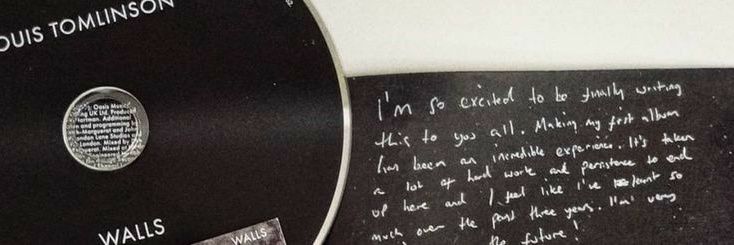 OUIS TOMLINSON
Oasis Music
ng UK Ltd. Produc
Additional
and programming
London Lane Studios
London. Mixed by
WALLS
WALLS
I'm so excited to be finally writing
this to you all. Making my first album
has been an incredible experience. It's taken
a lot of hard work and persistence to end
up here and I feel like I've learnt so
much over the past three years. very
the future!